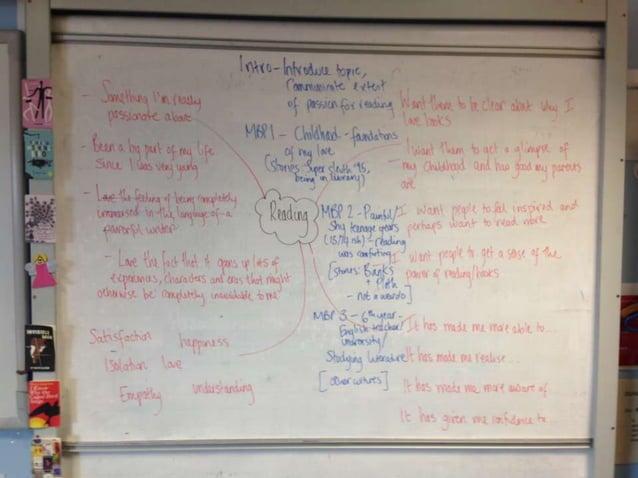 Intro - Introduce topic,
Communicate extent
of passion for reading
MBP 1 - Childhood - foundations
of my love
(stories: Super Sleuth '95,
being in library)
- Something I'm really
passionate about
- Been a big part of my life
since I was very young
- Love the feeling of being completely
immersed in the language of a
powerful writer
- Love the fact that it opens up lots of
experiences, characters and eras that might
otherwise be completely unavailable to me
Satisfaction happiness
Isolation love
Empathy understanding
Reading
MBP 2 - Painful/
Shy teenage years
(13/14 ish) - reading
was comforting
[stories: Banks
+ Plath
- not a weirdo]
MBP 3 - 6th year -
English teacher/
university/
Studying literature
[other cultures]
Want them to be clear about why I
love books
I want them to get a glimpse of
my childhood and how good my parents
are
I want people to feel inspired and
perhaps want to read more
I want people to get a sense of the
power of reading/books
It has made me more able to...
It has made me realise...
It has made me more aware of
It has given me confidence to...